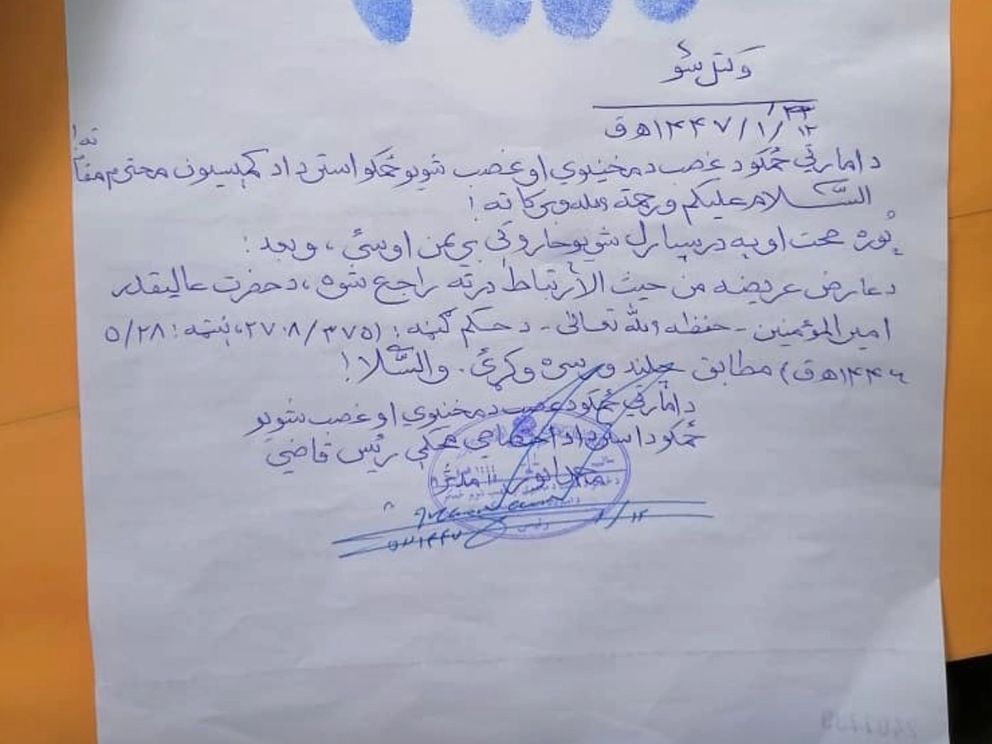 وکتل شو
۱۲/۱/۱۴۴۷هـ ق
د امارتي ځمکو د غصب د مخنیوي او غصب شویو ځمکو استرداد کمېسیون محترم مقام ته!
السَّلام علیکم ورحمة الله وبرکاته!
پوره صحت او په درسپارل شویو چارو کې بریمن اوسئ، وبعد:
د عارض عریضه من حیث الأرتباط درته راجع شوه، د حضرت عالیقدر
امیرالمؤمنین - حفظه الله تعالی - د حکم ګڼه: (۳۷۵/۲۷۰۸، نېټه: ۵/۲۸
۱۴۴۶هـ ق) مطابق چلند ورسره وکړئ. والسَّلام!
د امارتي ځمکو د غصب د مخنیوي او غصب شویو
ځمکو د استرداد اختصاصي محکمې رئیس قاضي
۱/۱۲
۱۴۴۷